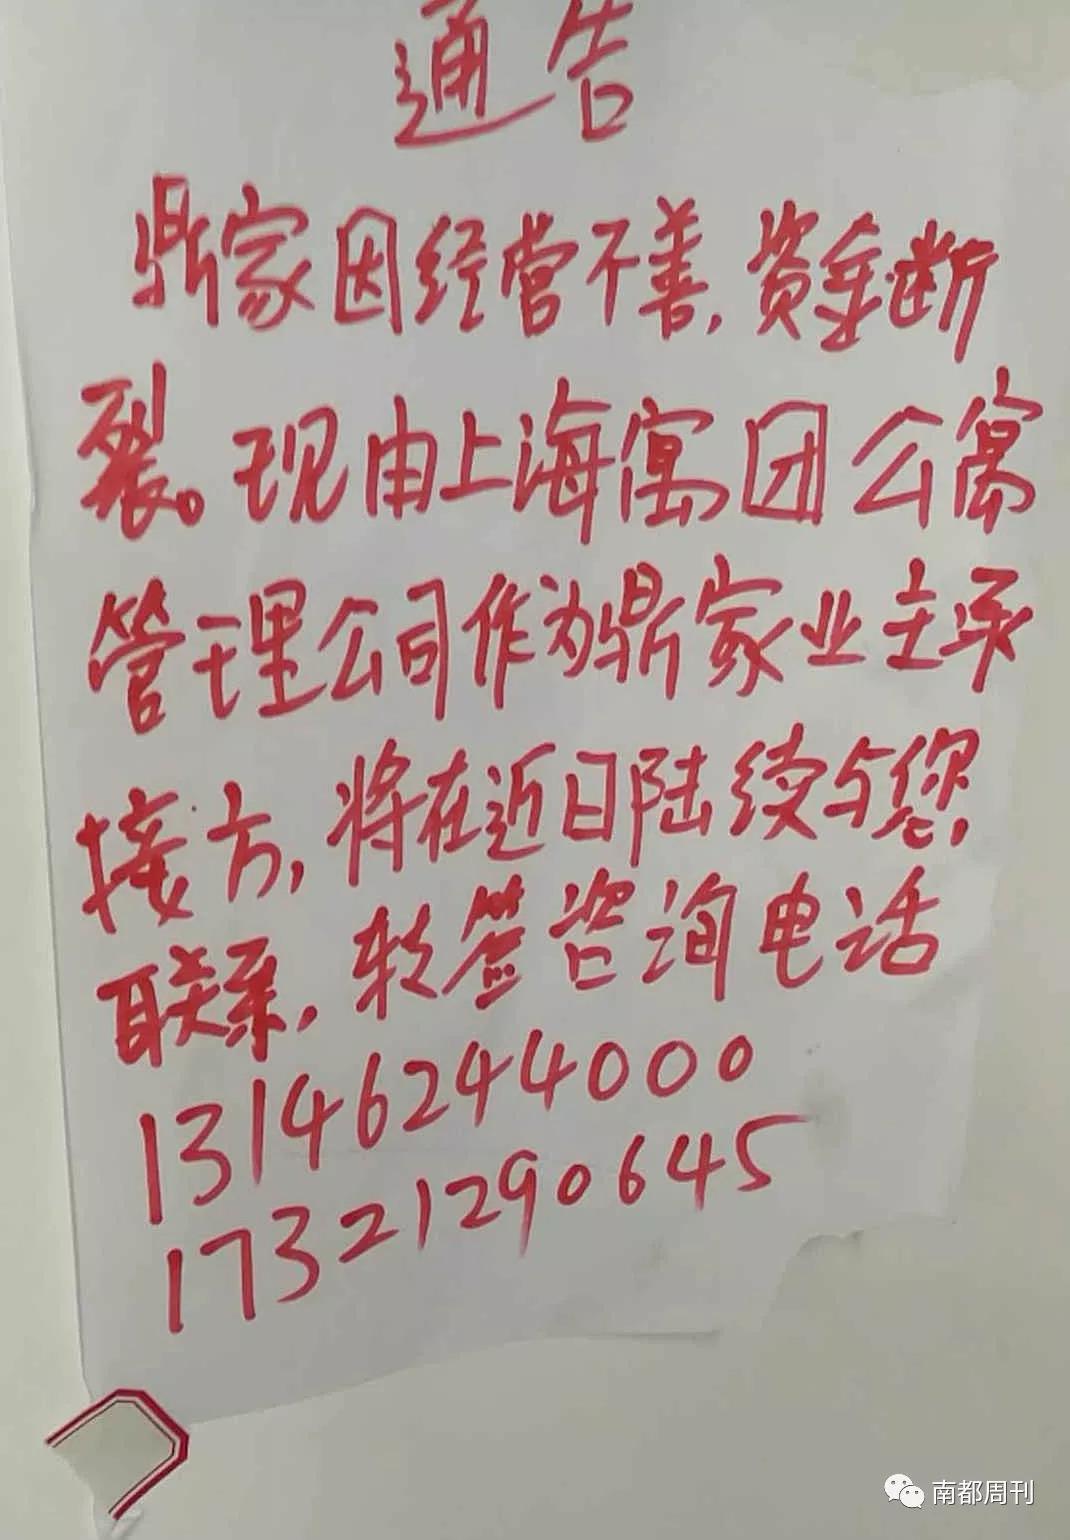 通告
鼎家因经营不善,资金断
裂。现由上海寓团公寓
管理公司作为鼎家业主承
接方,将在近日陆续与您
联系,转签咨询电话
13146244000
17321290645
南都周刊